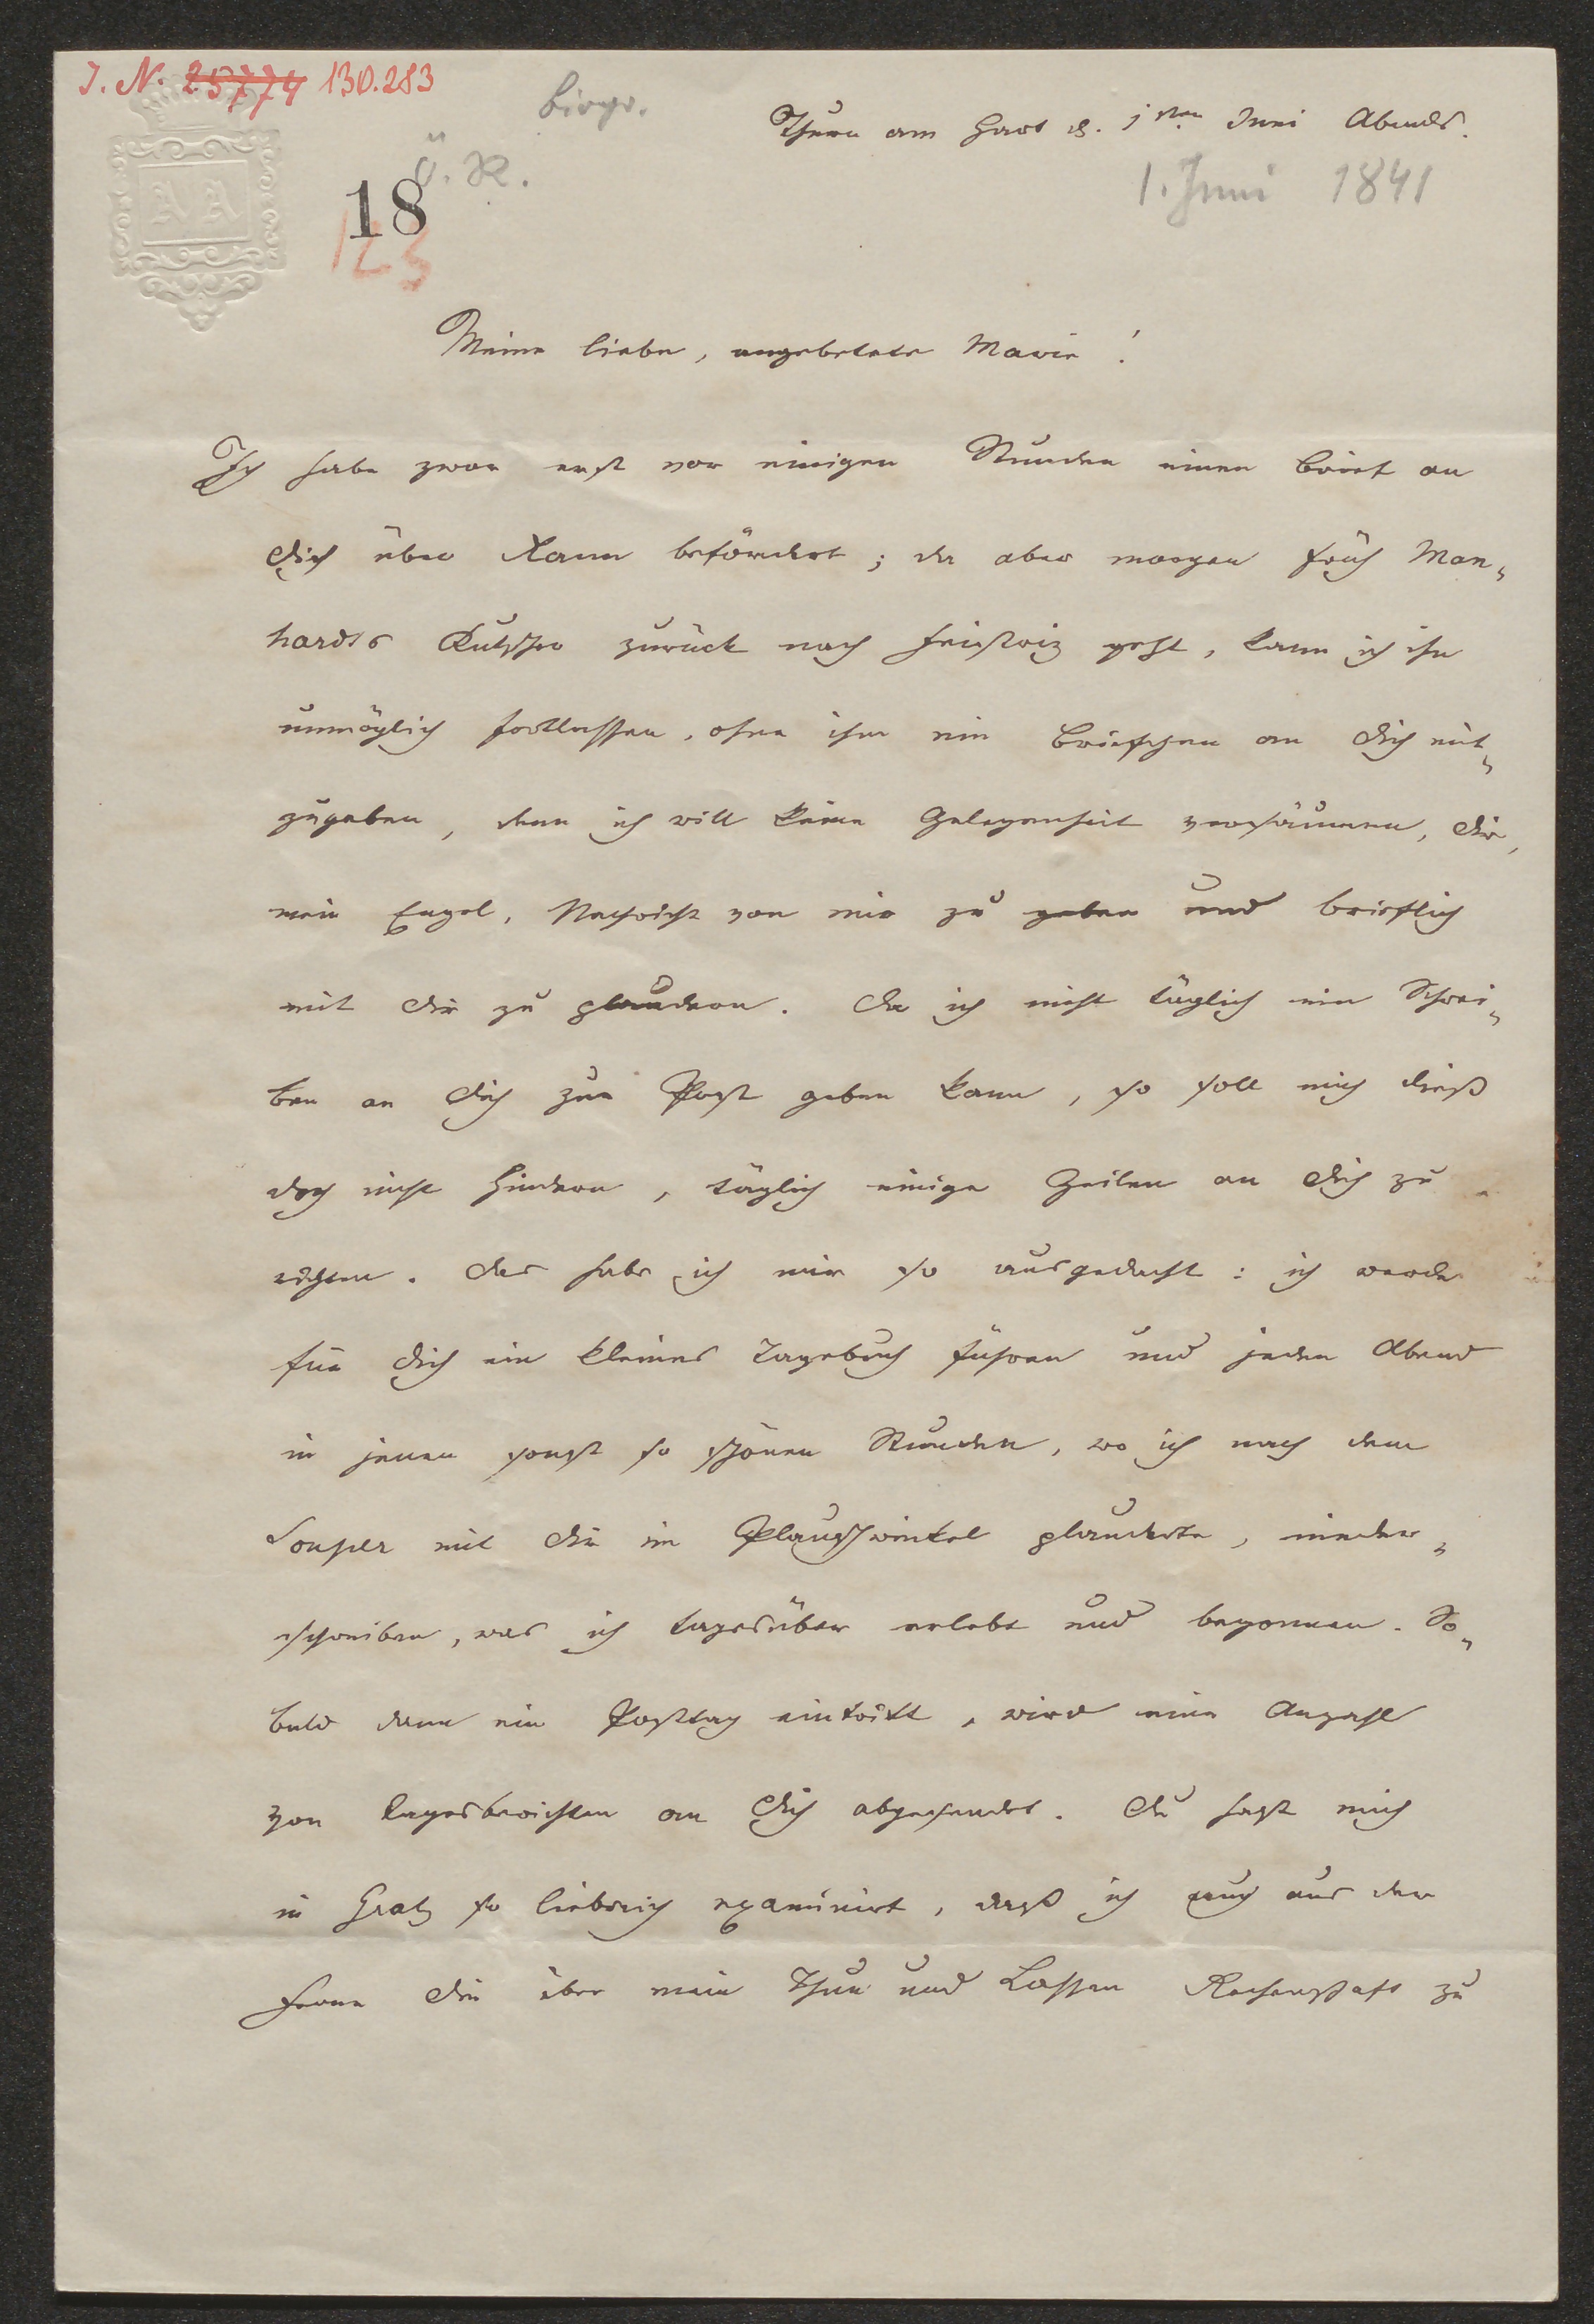 I. N. 25774 130.283
biogr.
Thurn am Hart d. 1sten Juni Abends.
Ö. R.
1. Juni 1841
18
123
Meine liebe, angebetete Marie!
Ich habe zwar erst vor einigen Stunden einen Brief an
Dich über Rann befördert; da aber morgen früh Man-
hardts Kutscher zurück nach Feistriz geht, kann ich ihn
unmöglich fortlassen, ohne ihm ein Briefchen an Dich mit-
zugeben, denn ich will keine Gelegenheit versäumen, Dir,
mein Engel, Nachricht von mir zu geben und brieflich
mit Dir zu plaudern. Da ich nicht täglich ein Schrei-
ben an Dich zur Post geben kann, so soll mich dieß
doch nicht hindern, täglich einige Zeilen an Dich zu
richten. Das habe ich mir so ausgedacht: ich werde
für Dich ein kleines Tagebuch führen und jeden Abend
in jenen sonst so schönen Stunden, wo ich nach dem
Souper mit Dir im Plauschwinkel plauderte, nieder-
schreiben, was ich tagesüber erlebt und begonnen. So-
bald dann ein Posttag eintritt, wird eine Anzahl
von Tagesberichten an Dich abgesendet. Du hast mich
in Gratz so liebreich examinirt, daß ich auch aus der
Ferne Dir über mein Thun und Lassen Rechenschaft zu